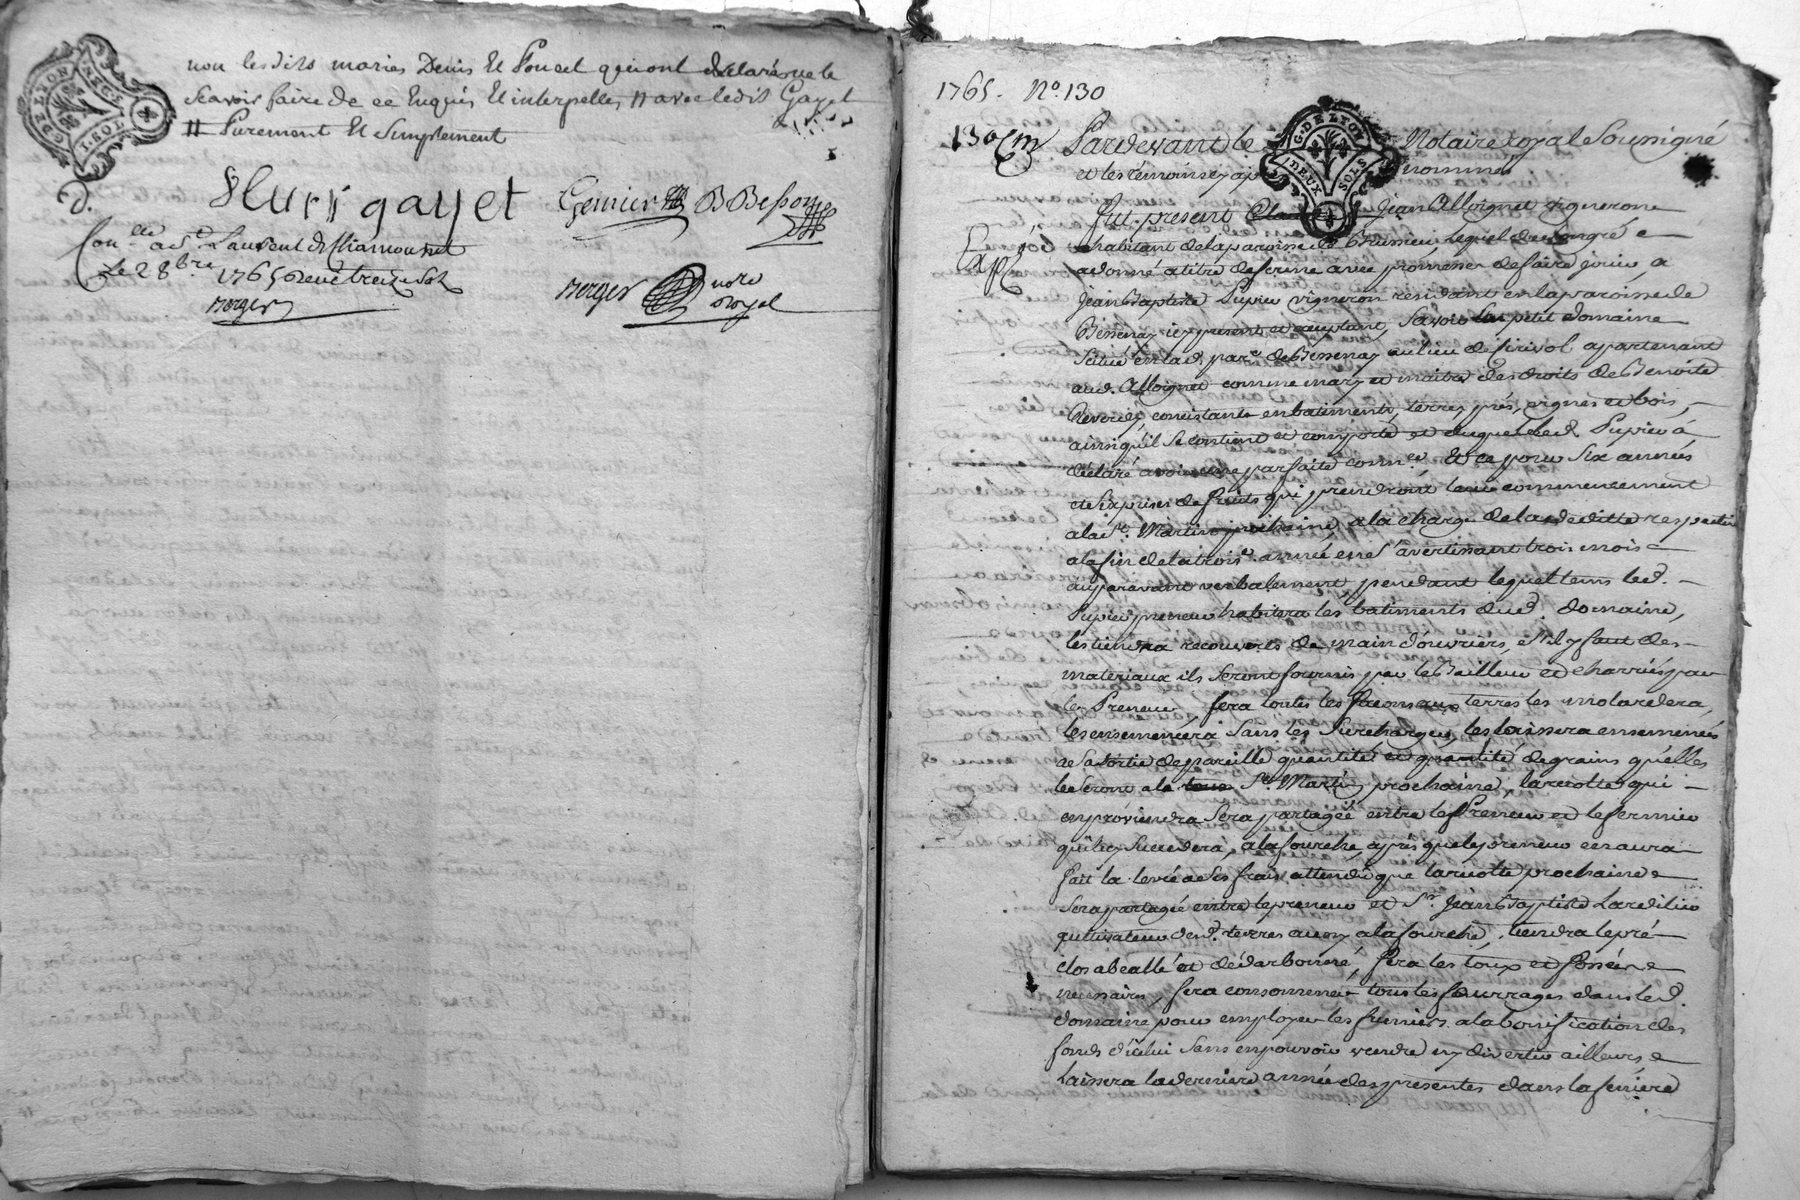 G. DE LYON
I. SOL
non lesdits mariés Denis Et Poncet qui ont declaré ne le
Scavoir faire de ce Enquis Et interpellés, # avec ledit Gayet
# Purement Et Simplement
D.
fleuri gayet Gennier B Besson
Con.lle a S.t Laurent de Chamousset
Le 28 8bre 1765 Recu treize sols
Berger
Berger no.re Royal
1765. N.o 130
130
G. DE LYON
DEUX SOLS
Pardevant le Notaire Royal Soussigné
et les témoins cy ap nommés
fut présent Jean Alloignet vigneron
habitant de la paroisse de Brussieu Lequel de son gré
Exp.é
a donné a titre de ferme avec promesse de faire jouir, a
Jean Baptiste Pupier vigneron residant en la paroisse de
Bessenay icy present et acceptant, Savoir un petit domaine
Situé en lad. par.e de Bessenay au lieu de apartenant
aud. Alloignet comme mary et maitre des droits de Benoite
consistant en batiments, terres, prés, vignes et bois,
ainsy qu'il Se contient et comporte et duquel led. Pupier à
déclaré avoir une parfaite conn.ce Et ce pour Six années
et Six prises de fruits qui prendront leur commencement
a la S.t Martin prochaine, a la charge de la deditte respective
a la fin de la trois.e année en S'avertissant trois mois
auparavant verbalement pendant lequel tems led.
Pupier preneur habitera les batiments dud. domaine,
les tiendra recouverts de main d'ouvriers, et s'il y faut des
materiaux ils Seront fournis par le Bailleur et charriés par
le Preneur, fera toutes les façons aux terres les molardera,
les ensemencera Sans les Surcharger, les laissera ensemencés
a Sa Sortie de pareille quantité et qualité de grains qu'elles
le Seront a la S.t Martin prochaine, la recolte qui
en proviendra Sera partagée entre le Preneur et le fermier
qui luy Succedera, a la fourche, après que le preneur en aura
fait la levée a Ses frais attendu que la recolte prochaine
Sera partagée entre le preneur et S.r Jean Baptiste Lardilier
qultivateur desd. terres aussy a la fourche, tiendra le pré
clos et dédarbonné, fera les et fossés
necessaires, fera consommer tous les fourrages dans led.
domaine pour employer les fumiers a la bonification des
fonds d'icelui Sans en pouvoir vendre ny divertir ailleurs
Laissera la derniere année des presentes dans la feniere